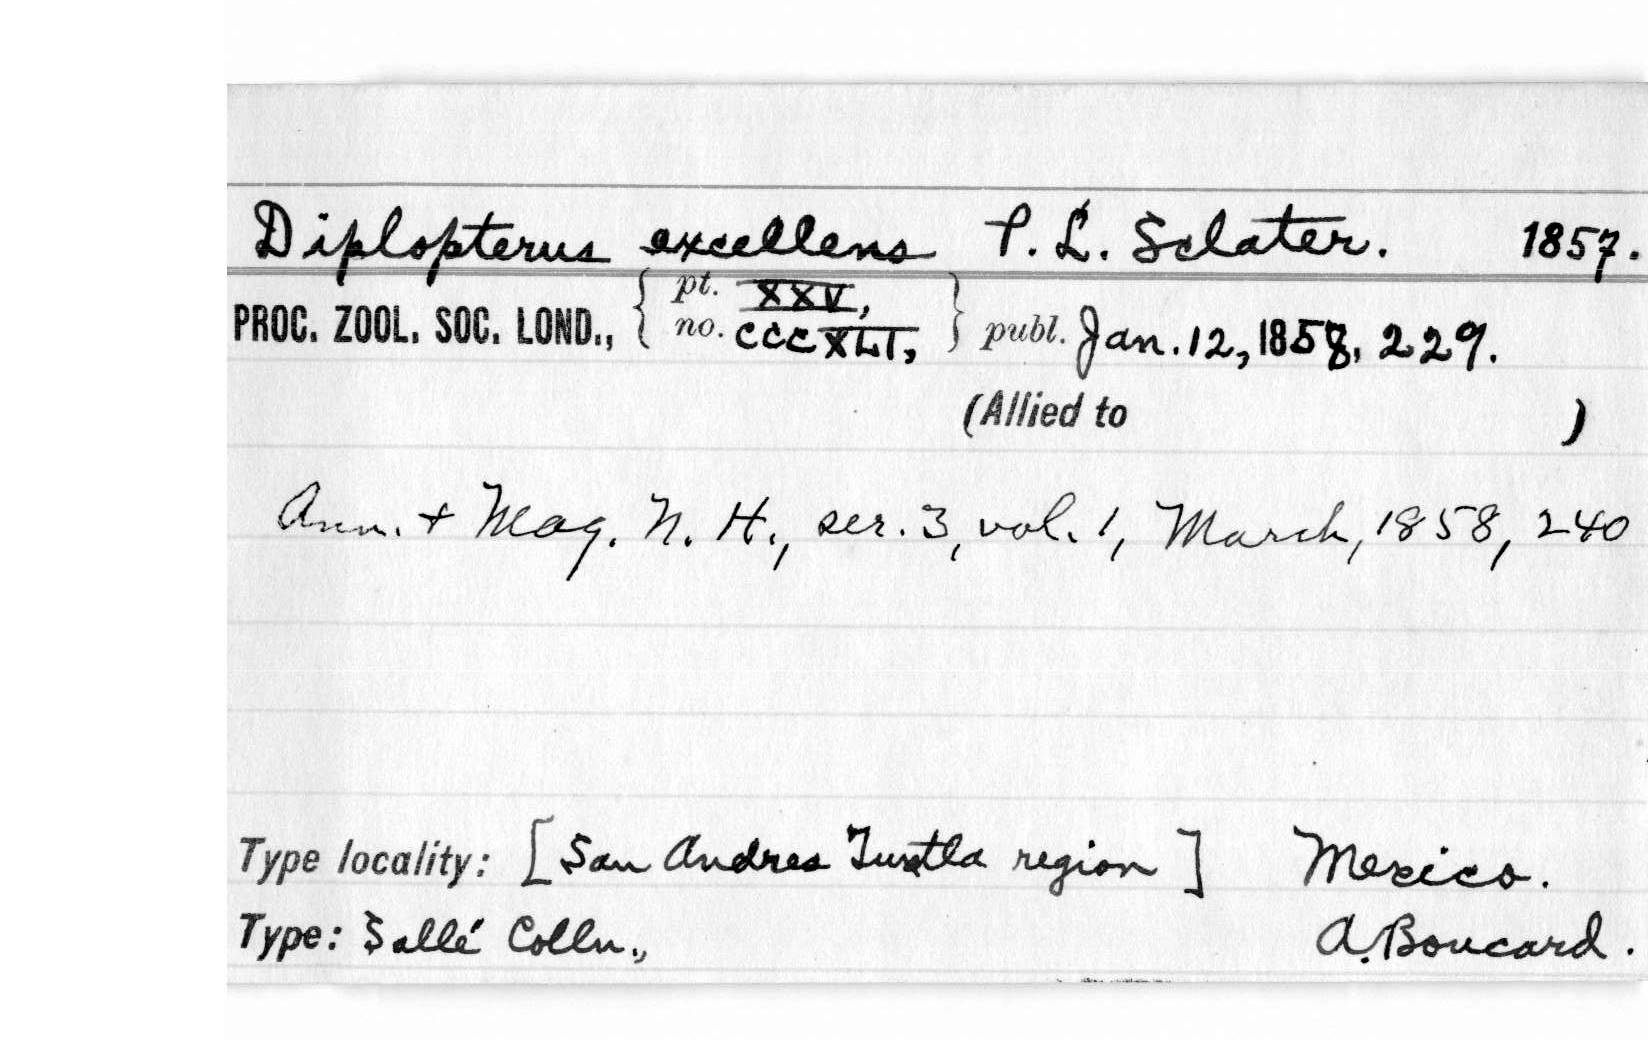 Diplopterus excellens P. L. Sclater. 1857.
PROC. ZOOL. SOC. LOND., { pt. XXV, no. CCCXLI, } publ. Jan. 12, 1858, 229.
(Allied to )
Ann. + Mag. N. H., ser. 3, vol. 1, March, 1858, 240
Type locality: [San Andres Tuxtla region] Mexico.
Type: Sallé Colln., A. Boucard.